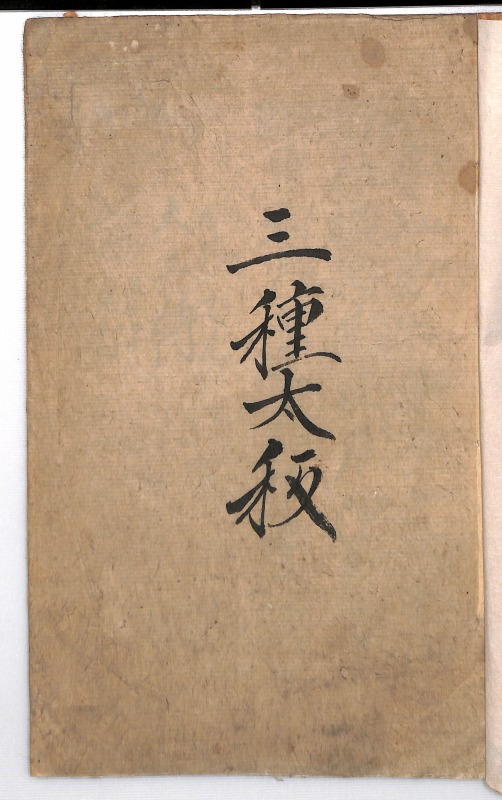 三種太秡